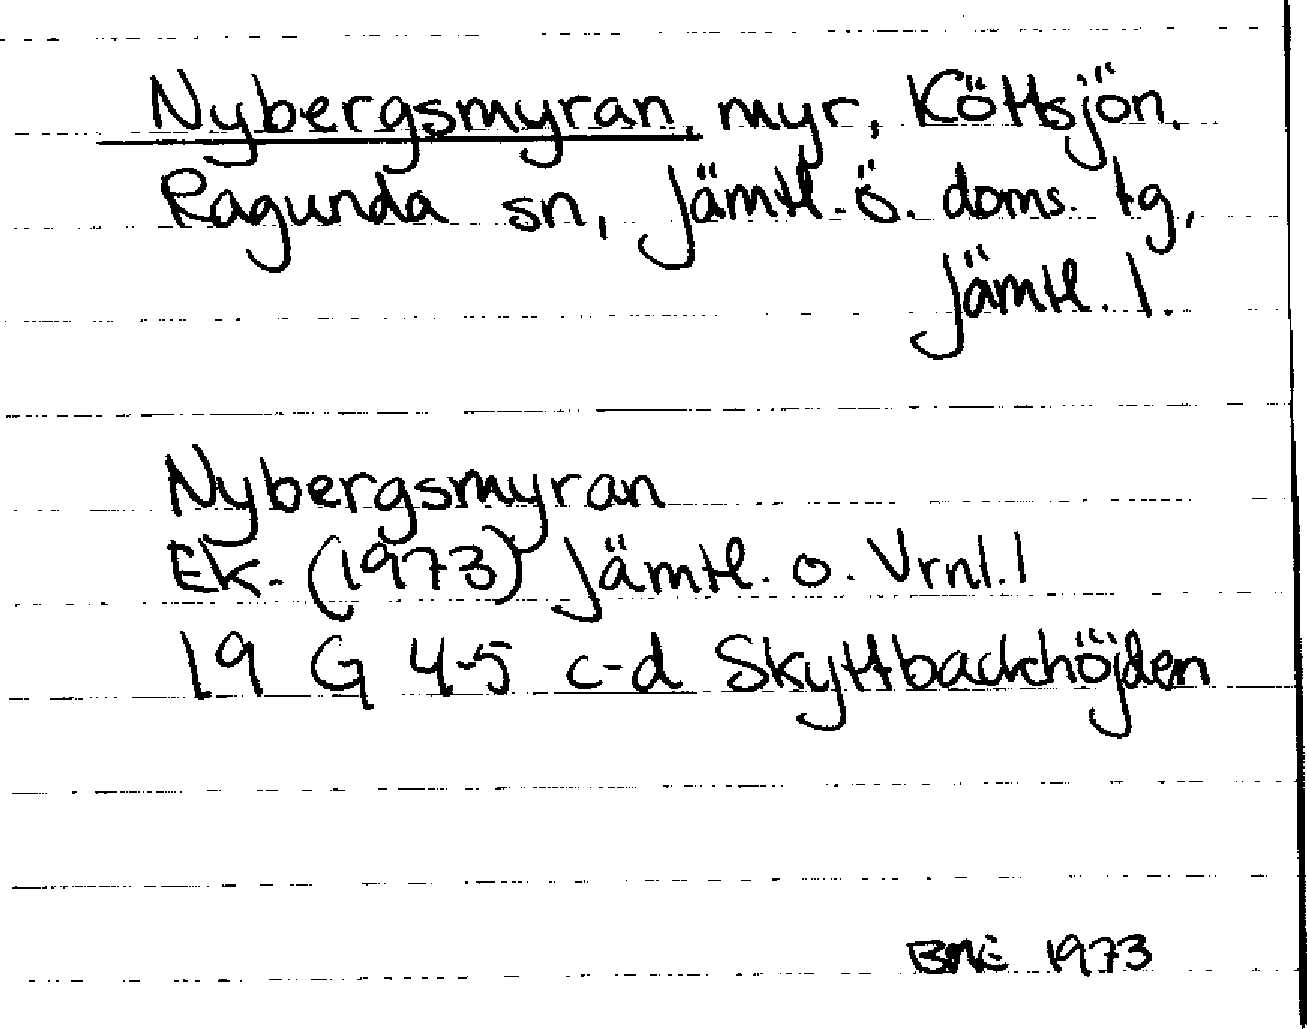 Nybergsmyran, myr, Köttsjön.
Ragunda sn, Jämtl. ö. doms. tg,
Jämtl. l.
Nybergsmyran
Ek. (1973) Jämtl. o. Vrnl. l
19 G 4-5 c-d Skyttbackhöjden
BME 1973